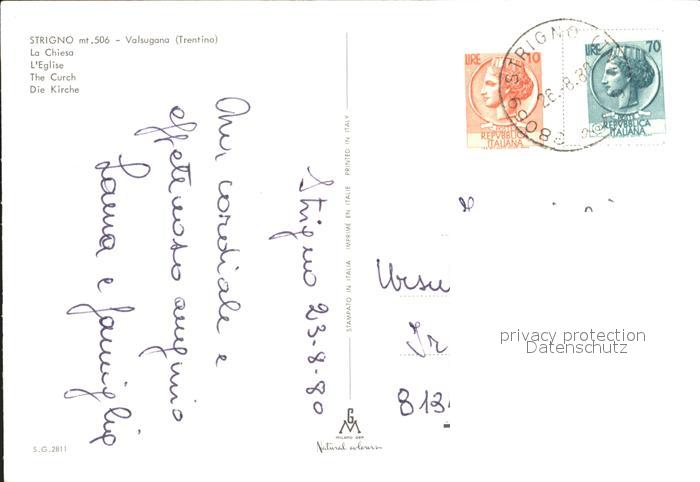 STRIGNO mt.506 - Valsugana (Trentino)
La Chiesa
L'Eglise
The Curch
Die Kirche
LIRE 10
POSTE
REPVBBLICA
ITALIANA
LIRE 70
POSTE
REPVBBLICA
ITALIANA
38059 STRIGNO
26.-8.80
Strigno 23-8-80
cordiale e
affettuoso augurio
e famiglia
STAMPATO IN ITALIA IMPRIMÉ EN ITALIE PRINTED IN ITALY
Ursu
813
privacy protection
Datenschutz
GM
MILANO DEP.
Natural colours
S.G.2811